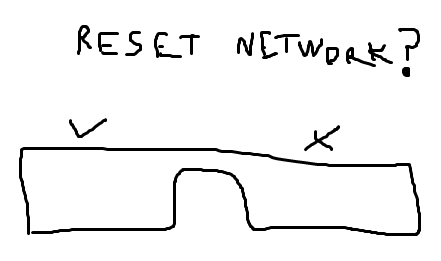 RESET NETWORK?